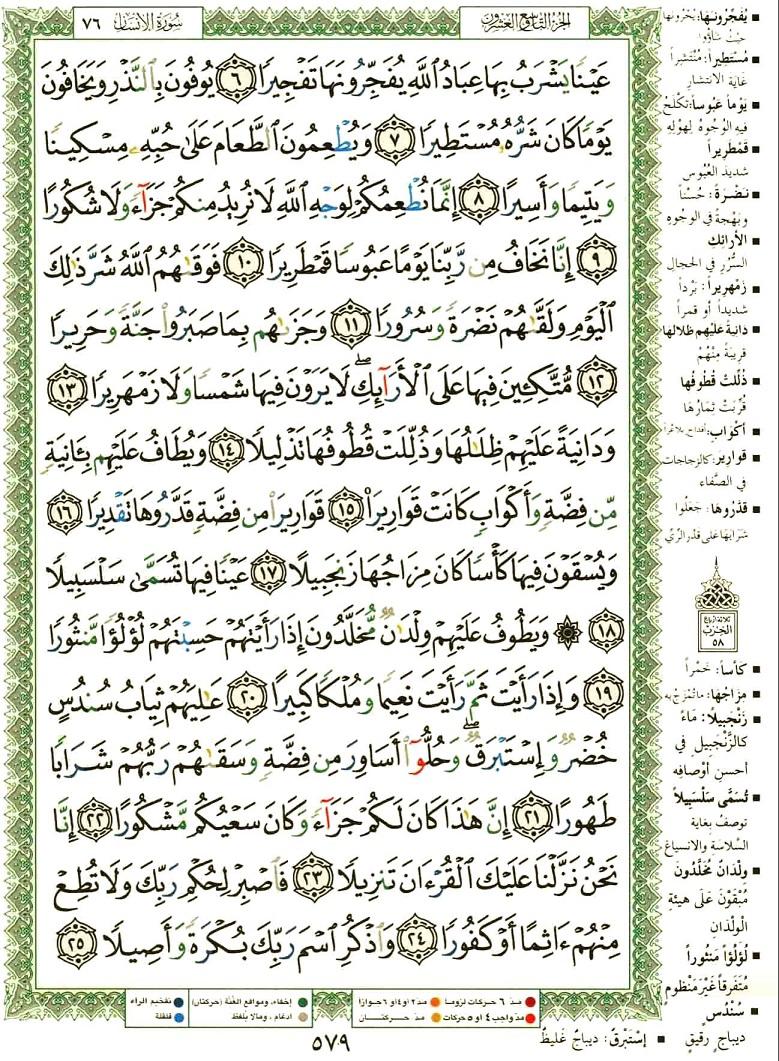 الجزء التاسع والعشرون
سورة الإنسان ٧٦
عَيْنًا يَشْرَبُ بِهَا عِبَادُ ٱللَّهِ يُفَجِّرُونَهَا تَفْجِيرًا ٦ يُوفُونَ بِٱلنَّذْرِ وَيَخَافُونَ
يَوْمًا كَانَ شَرُّهُۥ مُسْتَطِيرًا ٧ وَيُطْعِمُونَ ٱلطَّعَامَ عَلَىٰ حُبِّهِۦ مِسْكِينًا
وَيَتِيمًا وَأَسِيرًا ٨ إِنَّمَا نُطْعِمُكُمْ لِوَجْهِ ٱللَّهِ لَا نُرِيدُ مِنكُمْ جَزَآءً وَلَا شُكُورًا
٩ إِنَّا نَخَافُ مِن رَّبِّنَا يَوْمًا عَبُوسًا قَمْطَرِيرًا ١٠ فَوَقَىٰهُمُ ٱللَّهُ شَرَّ ذَٰلِكَ
ٱلْيَوْمِ وَلَقَّىٰهُمْ نَضْرَةً وَسُرُورًا ١١ وَجَزَىٰهُم بِمَا صَبَرُوا۟ جَنَّةً وَحَرِيرًا
١٢ مُّتَّكِـِٔينَ فِيهَا عَلَى ٱلْأَرَآئِكِ ۖ لَا يَرَوْنَ فِيهَا شَمْسًا وَلَا زَمْهَرِيرًا ١٣
وَدَانِيَةً عَلَيْهِمْ ظِلَٰلُهَا وَذُلِّلَتْ قُطُوفُهَا تَذْلِيلًا ١٤ وَيُطَافُ عَلَيْهِم بِـَٔانِيَةٍ
مِّن فِضَّةٍ وَأَكْوَابٍ كَانَتْ قَوَارِيرَا۠ ١٥ قَوَارِيرَا۟ مِن فِضَّةٍ قَدَّرُوهَا تَقْدِيرًا ١٦
وَيُسْقَوْنَ فِيهَا كَأْسًا كَانَ مِزَاجُهَا زَنجَبِيلًا ١٧ عَيْنًا فِيهَا تُسَمَّىٰ سَلْسَبِيلًا
١٨ ۞ وَيَطُوفُ عَلَيْهِمْ وِلْدَٰنٌ مُّخَلَّدُونَ إِذَا رَأَيْتَهُمْ حَسِبْتَهُمْ لُؤْلُؤًا مَّنثُورًا
١٩ وَإِذَا رَأَيْتَ ثَمَّ رَأَيْتَ نَعِيمًا وَمُلْكًا كَبِيرًا ٢٠ عَٰلِيَهُمْ ثِيَابُ سُندُسٍ
خُضْرٌ وَإِسْتَبْرَقٌ ۖ وَحُلُّوٓا۟ أَسَاوِرَ مِن فِضَّةٍ وَسَقَىٰهُمْ رَبُّهُمْ شَرَابًا
طَهُورًا ٢١ إِنَّ هَٰذَا كَانَ لَكُمْ جَزَآءً وَكَانَ سَعْيُكُم مَّشْكُورًا ٢٢ إِنَّا
نَحْنُ نَزَّلْنَا عَلَيْكَ ٱلْقُرْءَانَ تَنزِيلًا ٢٣ فَٱصْبِرْ لِحُكْمِ رَبِّكَ وَلَا تُطِعْ
مِنْهُمْ ءَاثِمًا أَوْ كَفُورًا ٢٤ وَٱذْكُرِ ٱسْمَ رَبِّكَ بُكْرَةً وَأَصِيلًا ٢٥
يُفَجِّرُونَهَا: يُجْرُونَهَا
حيثُ شاؤُوا
مُسْتَطِيراً: مُنْتَشِراً
غايَةَ الانتشارِ
يَوْماً عَبُوساً: تكلَحُ
فيه الوُجوهُ لِهَوْلِهِ
قَمْطَرِيراً
شديدَ العُبُوسِ
نَضْرَةً: حُسْناً
وبَهْجةً في الوجوهِ
الأَرائِكِ
السُّرُرِ في الحجالِ
زَمْهَرِيراً: بَرْداً
شديداً أو قمراً
دانِيةً عَلَيْهِم ظِلالُها
قريبةً مِنْهُمْ
ذُلِّلَتْ قُطوفُها
قُرِّبَتْ ثِمَارُها
أكْوابٍ: أقداحٍ بلا عُراً
قَوارِيرَ: كالزجاجاتِ
في الصَّفاءِ
قَدَّرُوهَا: جَعَلُوا
شَرابَها على قَدْرِ الرِّيِّ
ثلاثة أرباع
الحزب
٥٨
كَأْساً: خَمْراً
مِزاجُهَا: ما تُمْزَجُ بِهِ
زَنْجَبِيلاً: مَاءً
كالزَّنْجَبيلِ في
أحسنِ أوْصافِهِ
تُسَمَّى سَلْسَبِيلاً
توصَفُ بِغايةِ
السَّلاسَةِ والانسياغِ
وِلْدانٌ مُخَلَّدُونَ
مُبْقَوْنَ على هيئةِ
الوِلْدانِ
لُؤْلُؤاً مَنْثُوراً
مُتَفَرِّقاً غَيْرَ مَنْظُومٍ
سُنْدُسٍ
ديباجٍ رقيقٍ
إِسْتَبْرَقٌ: ديباجٌ غَليظٌ
مدّ ٦ حركات لزوماً
مدّ ٢ أو ٤ أو ٦ جوازاً
مدّ واجب ٤ أو ٥ حركات
مدّ حركتان
إخفاء، ومواقع الغُنَّة (حركتان)
ادغام، وما لا يُلفَظ
تفخيم الراء
قلقلة
٥٧٩